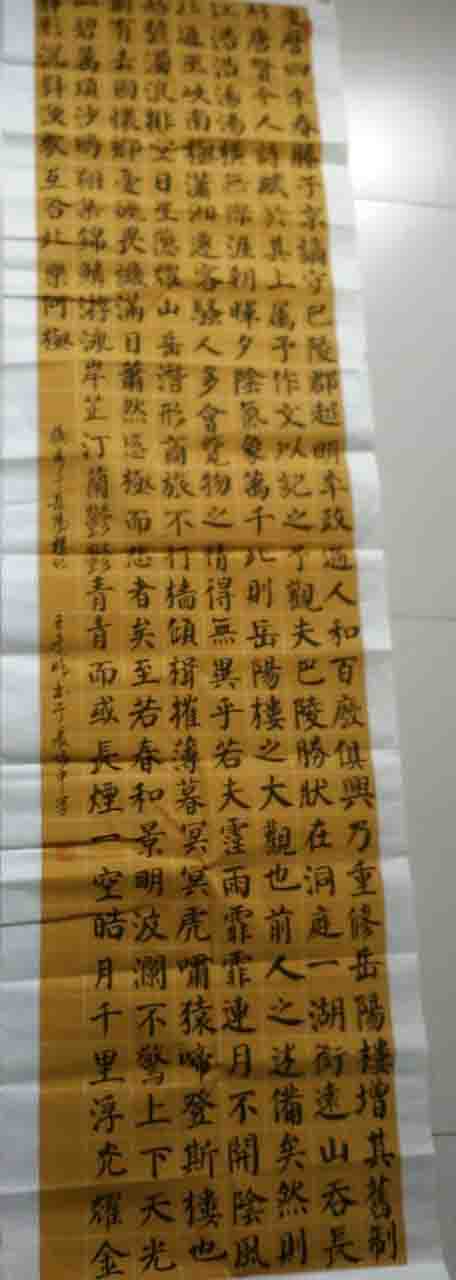 曆四年春滕子京謫守巴陵郡越明年政通人和百廢俱興乃重修岳陽樓增其舊制
刻唐賢今人詩賦於其上屬予作文以記之予觀夫巴陵勝狀在洞庭一湖銜遠山吞長
江浩浩湯湯橫無際涯朝暉夕陰氣象萬千此則岳陽樓之大觀也前人之述備矣然則
北通巫峽南極瀟湘遷客騷人多會覽物之情得無異乎若夫霪雨霏霏連月不開陰風
怒號濁浪排空日星隱耀山岳潛形商旅不行檣傾楫摧薄暮冥冥虎嘯猿啼登斯樓也
則有去國懷鄉憂讒畏譏滿目蕭然感極而悲者矣至若春和景明波瀾不驚上下天光
一碧萬頃沙鷗翔集錦鱗游泳岸芷汀蘭鬱鬱青青而或長煙一空皓月千里浮光耀金
靜影沉璧漁歌互答此樂何極
岳陽樓記